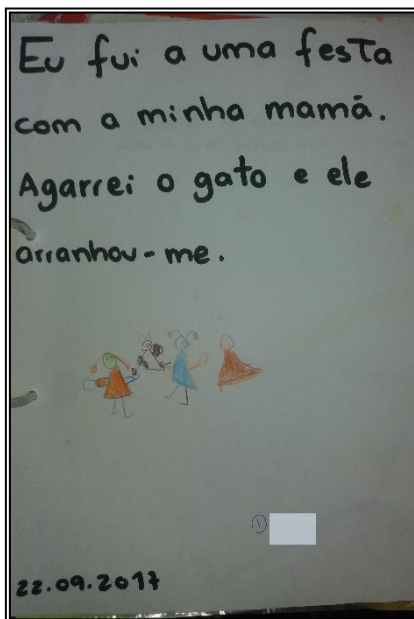 Eu fui a uma festa
com a minha mamã.
Agarrei o gato e ele
arranhou-me.
①
22.09.2017